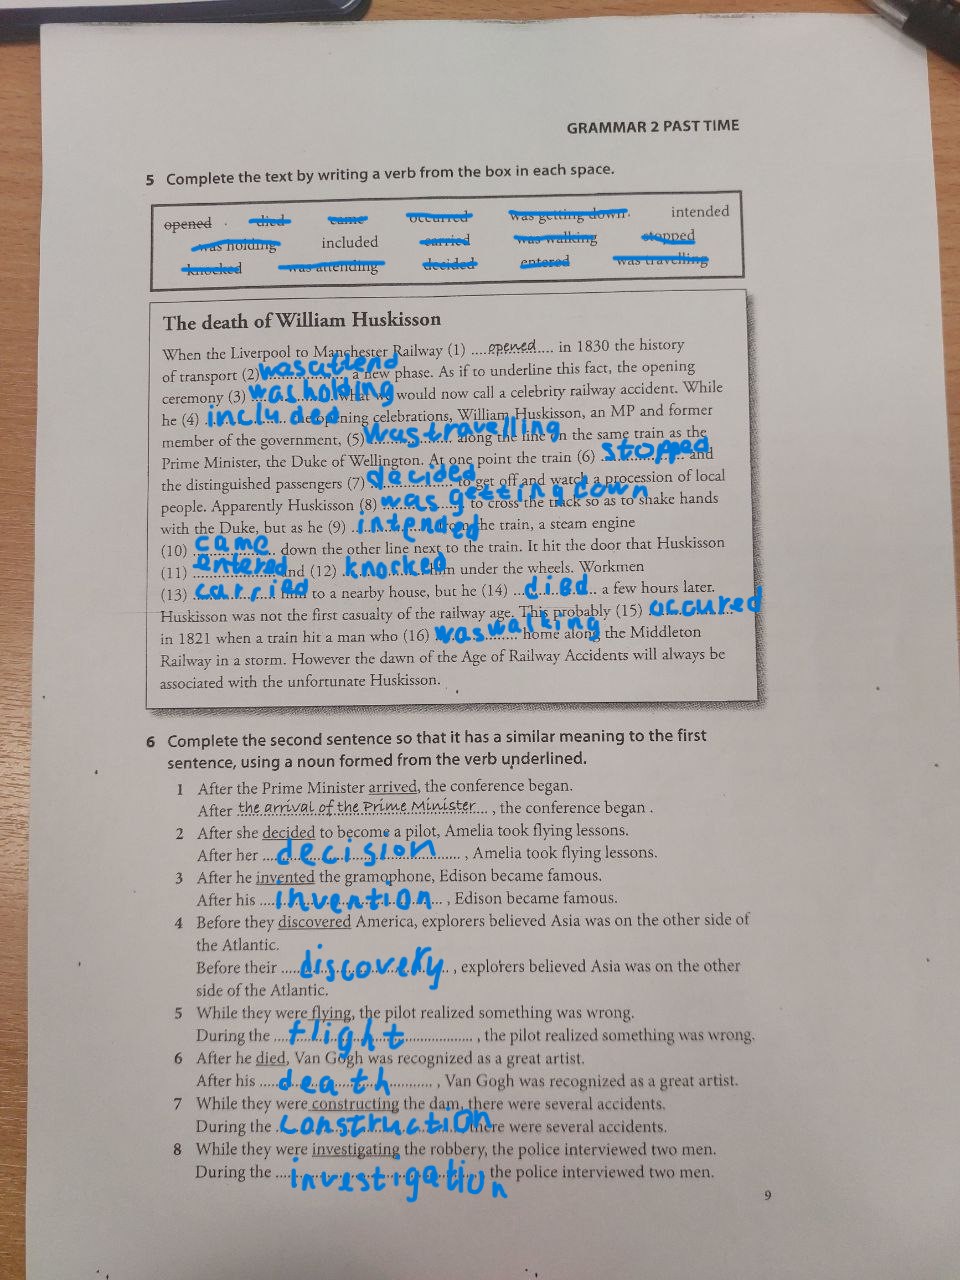 GRAMMAR 2 PAST TIME
5 Complete the text by writing a verb from the box in each space.
opened died came occurred was getting down intended
was holding included carried was walking stopped
knocked was attending decided entered was travelling
The death of William Huskisson
When the Liverpool to Manchester Railway (1) ....opened.... in 1830 the history
of transport (2) was attend a new phase. As if to underline this fact, the opening
ceremony (3) was holding what we would now call a celebrity railway accident. While
he (4) included the opening celebrations, William Huskisson, an MP and former
member of the government, (5) was travelling along the line on the same train as the
Prime Minister, the Duke of Wellington. At one point the train (6) stopped and
the distinguished passengers (7) decided to get off and watch a procession of local
people. Apparently Huskisson (8) was getting down to cross the track so as to shake hands
with the Duke, but as he (9) intended from the train, a steam engine
(10) came down the other line next to the train. It hit the door that Huskisson
(11) entered and (12) knocked him under the wheels. Workmen
(13) carried him to a nearby house, but he (14) died a few hours later.
Huskisson was not the first casualty of the railway age. This probably (15) accured
in 1821 when a train hit a man who (16) was walking home along the Middleton
Railway in a storm. However the dawn of the Age of Railway Accidents will always be
associated with the unfortunate Huskisson.
6 Complete the second sentence so that it has a similar meaning to the first
sentence, using a noun formed from the verb underlined.
1 After the Prime Minister arrived, the conference began.
After the arrival of the Prime Minister..., the conference began.
2 After she decided to become a pilot, Amelia took flying lessons.
After her decision, Amelia took flying lessons.
3 After he invented the gramophone, Edison became famous.
After his invention, Edison became famous.
4 Before they discovered America, explorers believed Asia was on the other side of
the Atlantic.
Before their discovery, explorers believed Asia was on the other
side of the Atlantic.
5 While they were flying, the pilot realized something was wrong.
During the flight, the pilot realized something was wrong.
6 After he died, Van Gogh was recognized as a great artist.
After his death, Van Gogh was recognized as a great artist.
7 While they were constructing the dam, there were several accidents.
During the construction there were several accidents.
8 While they were investigating the robbery, the police interviewed two men.
During the investigation, the police interviewed two men.
9